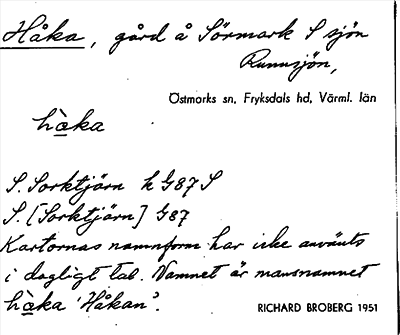 Håka, gård å Sörmark S sjön
Runnsjön,
Östmarks sn, Fryksdals hd, Värml. län
hå̀ka
S. Sorktjärn h G87 S
S. [Sorktjärn] G87
Kartornas namnform har icke använts
i dagligt tal. Namnet är mansnamnet
hå̀ka 'Håkan'.
RICHARD BROBERG 1951